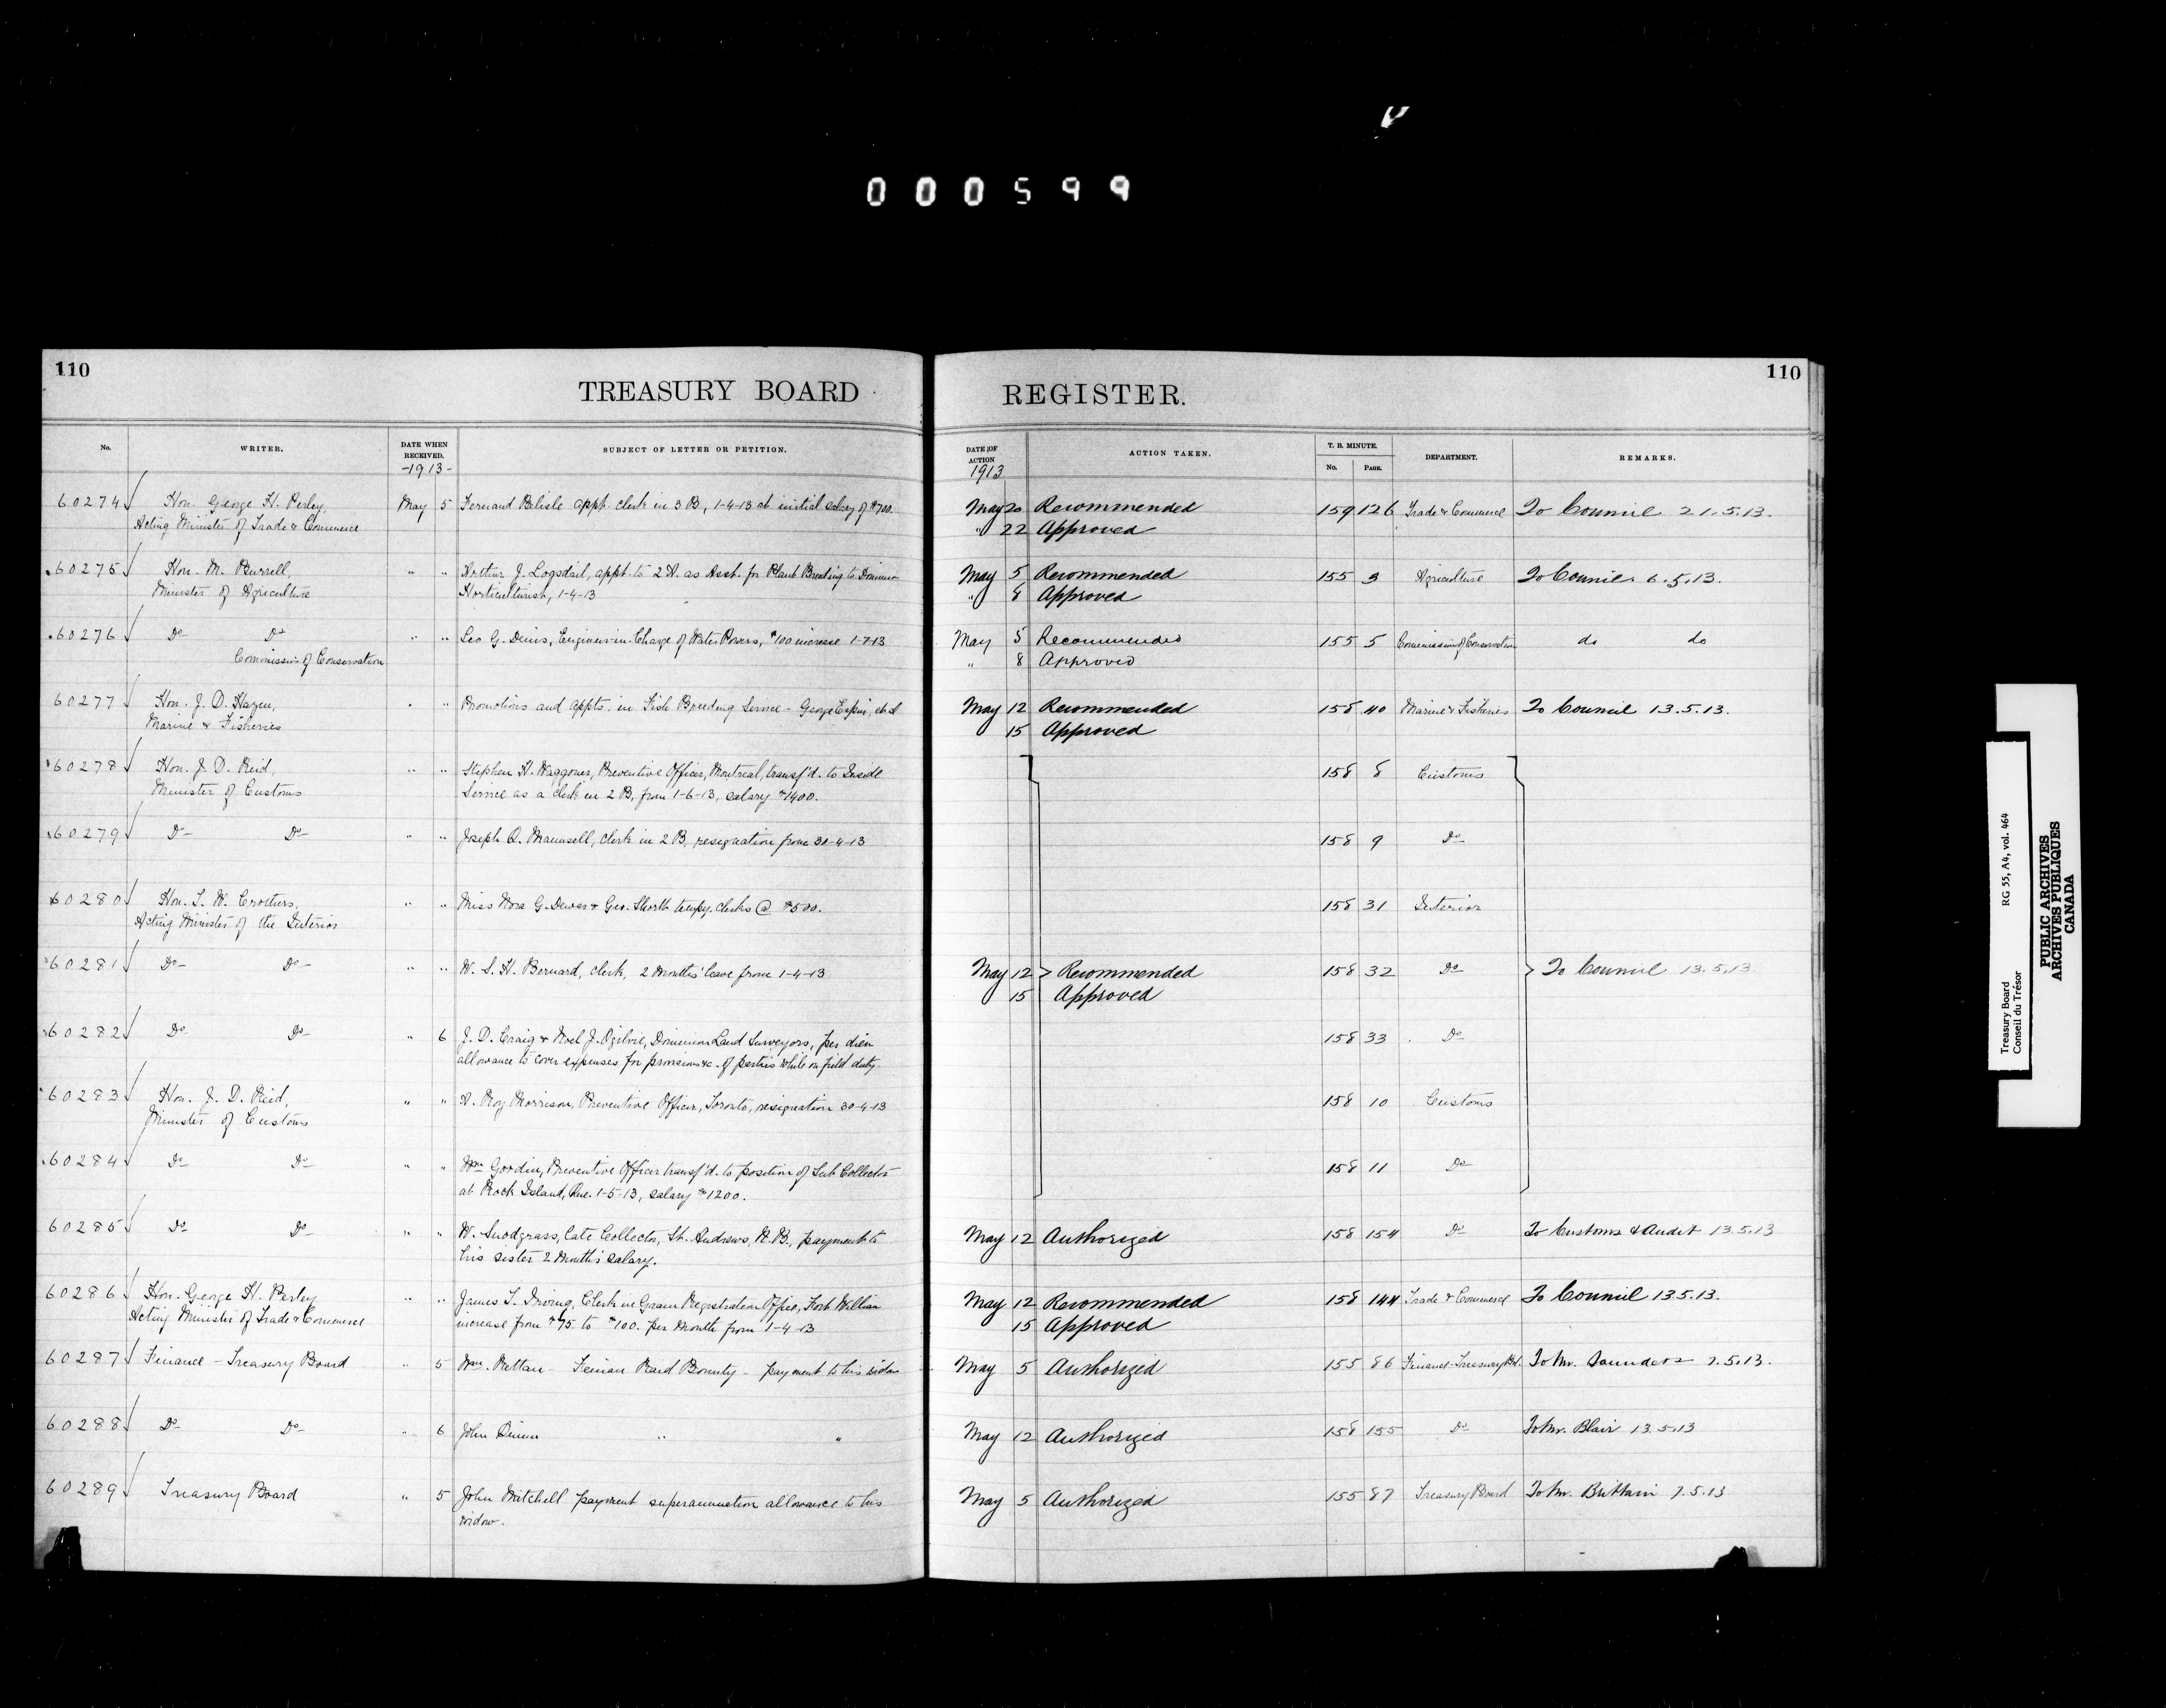 000599
110
TREASURY BOARD
REGISTER.
110
No.
WRITER.
DATE WHEN RECEIVED.
-1913-
SUBJECT OF LETTER OR PETITION.
DATE OF ACTION
1913
ACTION TAKEN.
T. B. MINUTE.
No.
PAGE.
DEPARTMENT.
REMARKS.
60274 Hon. George H. Perley, May 5 Fernand Belisle appt. clerk in 3 B, 1-4-13 at initial salary of $700. May 20 Recommended 159 126 Trade & Commerce To Council 21.5.13.
Acting Minister of Trade & Commerce " 22 Approved
60275 Hon. M. Burrell, " " Arthur J. Logsdail, appt. to 2 A. as Asst. for Plant Breeding to Dominion May 5 Recommended 155 3 Agriculture To Council 6.5.13.
Minister of Agriculture Horticulturist, 1-4-13 " 8 Approved
60276 Do Do " " Leo G. Denis, Engineer-in-Charge of Water Powers, $100 increase 1-7-13 May 5 Recommended 155 5 Commission of Conservation do do
Commission of Conservation " 8 Approved
60277 Hon. J. D. Hazen, " " Promotions and appts. in Fish Breeding Service - George Espin, et al May 12 Recommended 158 40 Marine & Fisheries To Council 13.5.13.
Marine & Fisheries 15 Approved
60278 Hon. J. D. Reid, " " Stephen H. Waggoner, Preventive Officer, Montreal, transf'd. to Inside 158 8 Customs
Minister of Customs Service as a clerk in 2 B, from 1-6-13, salary $1400.
60279 Do Do " " Joseph Q. Maunsell, clerk in 2 B, resignation from 30-4-13 158 9 Do
60280 Hon. T. W. Crothers, " " Miss Nora G. Dewar & Geo. Shorth tempy. clerks @ $500. 158 31 Interior
Acting Minister of the Interior
60281 Do Do " " W. S. H. Bernard, clerk, 2 months' leave from 1-4-13 May 12 Recommended 158 32 Do To Council 13.5.13
15 Approved
60282 Do Do " 6 J. D. Craig & Noel J. Ogilvie, Dominion Land Surveyors, per diem 158 33 Do
allowance to cover expenses for provisions &c. of parties while on field duty.
60283 Hon. J. D. Reid, " " A. Roy Morrison, Preventive Officer, Toronto, resignation 30-4-13 158 10 Customs
Minister of Customs
60284 Do Do " " Wm Goodin, Preventive Officer transf'd. to position of Sub Collector 158 11 Do
at Rock Island, Que. 1-5-13, salary $1200.
60285 Do Do " " W. Snodgrass, late Collector, St. Andrews, N.B., payment to May 12 Authorized 158 154 Do To Customs & Audit 13.5.13
his sister 2 months' salary.
60286 Hon. George H. Perley " " James T. Irving, Clerk in Grain Registration Office, Fort William May 12 Recommended 158 144 Trade & Commerce To Council 13.5.13.
Acting Minister of Trade & Commerce increase from $75 to $100. per month from 1-4-13 15 Approved
60287 Finance - Treasury Board " 5 Wm. Rettan - Fenian Raid Bounty - payment to his widow May 5 Authorized 155 86 Finance-Treasury Bd. To Mr. Saunders 7.5.13.
60288 Do Do " 6 John " " May 12 Authorized 158 155 Do To Mr. Blair 13.5.13
60289 Treasury Board " 5 John Mitchell payment superannuation allowance to his May 5 Authorized 155 87 Treasury Board To Mr. Brittain 7.5.13
widow.
Treasury Board RG 55, A4, vol. 464
Conseil du Trésor
PUBLIC ARCHIVES
ARCHIVES PUBLIQUES
CANADA